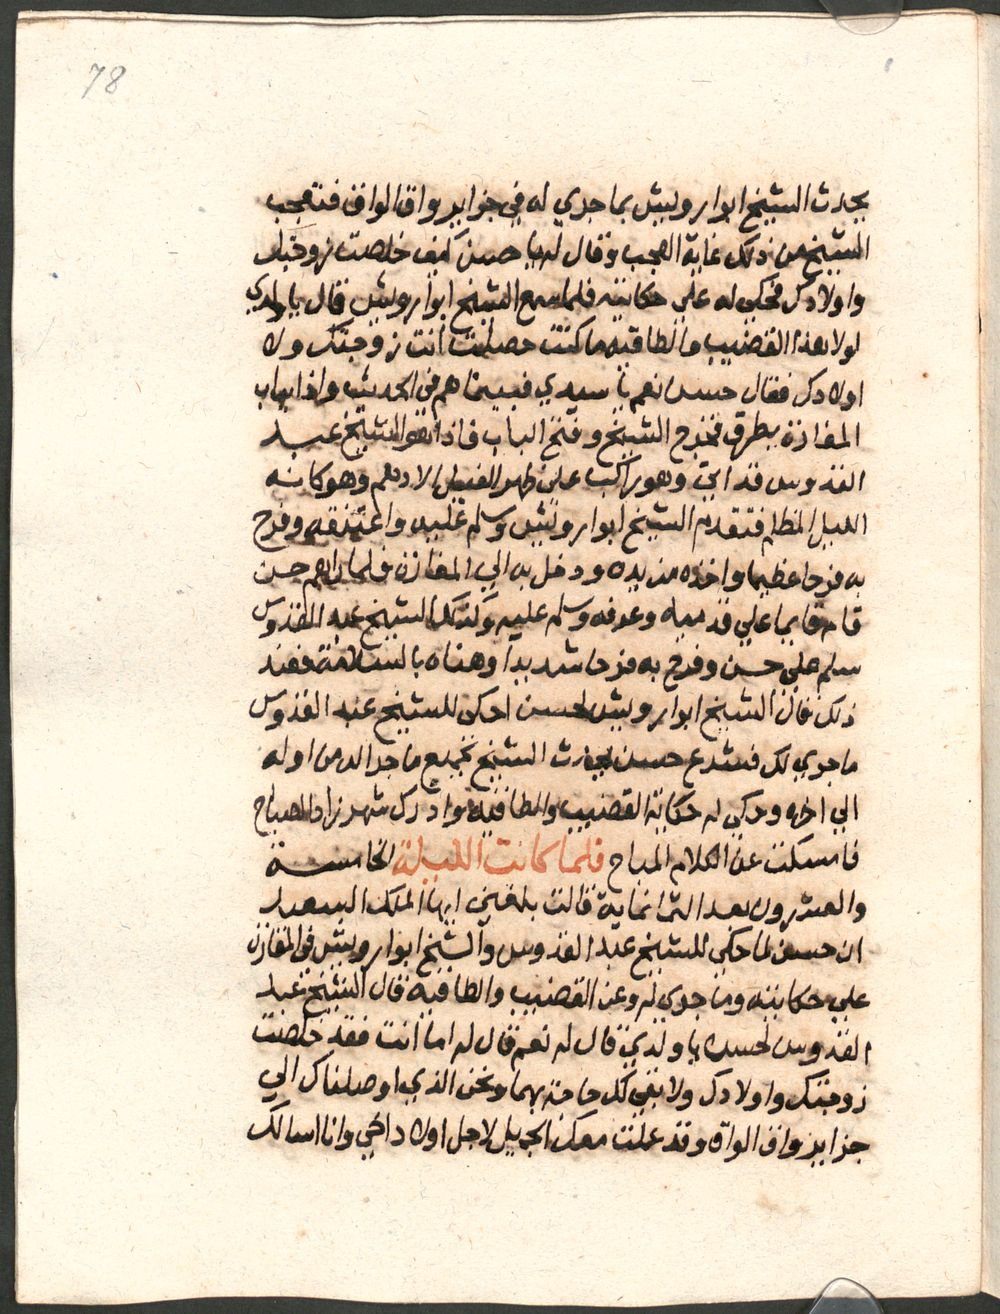 78
يحدث الشيخ ابوارويش بما جري له في جزاير واق الواق فتعجب
الشيخ من ذلك غاية العجب وقال له يا حسن كيف خلصت زوجتك
واولادك فحكي له علي حكايته فلما سمع الشيخ ابوارويش قال يا ولدي
لولا هذا القضيب والطاقيه ما كنت خصلت انت زوجتك ولا
اولادك فقال حسن نعم يا سيدي فبينما هم في الحديث واذا بباب
المغازة يطرق فخرج الشيخ وفتح الباب فاذا هو الشيخ عبد
القدوس قد اتي وهو راكب علي ظهر الفيل الادهم وهو كانه
الليل المظلم فتقدم الشيخ ابوارويش وسلم عليه واعتنقه وفرح
به فرحا عظيما واخذه من يده ودخل به الي المغازه فلما راهم حسن
قام قايما علي قدميه وعرفه وسلم عليه وكذلك الشيخ عبد القدوس
سلم علي حسن وفرح به فرحا شديدا وهناه بالسلامة فعند
ذلك قال الشيخ ابوارويش لحسن احكي للشيخ عبد القدوس
ما جري لك فشرع حسن يحدث الشيخ بجميع ما جرا له من اوله
الي اخره وحكي له حكاية القضيب والطاقيه وادرك شهرزاد الصباح
فامسكت عن الكلام المباح فلما كانت الليلة الخامسة
والعشرون بعد الثمانماية قالت بلغني ايها الملك السعيد
ان حسن لما حكي للشيخ عبد القدوس والشيخ ابوارويش في المغازه
علي حكايته وما جري له وعن القضيب والطاقيه قال الشيخ عبد
القدوس لحسن يا ولدي قال له نعم قال له اما انت فقد خلصت
زوجتك واولادك ولا بقي لك حاجة بهما ونحن الذي اوصلناك الي
جزاير واق الواق وقد عملت معك الجميل لاجل اولاد اخي وانا اسالك